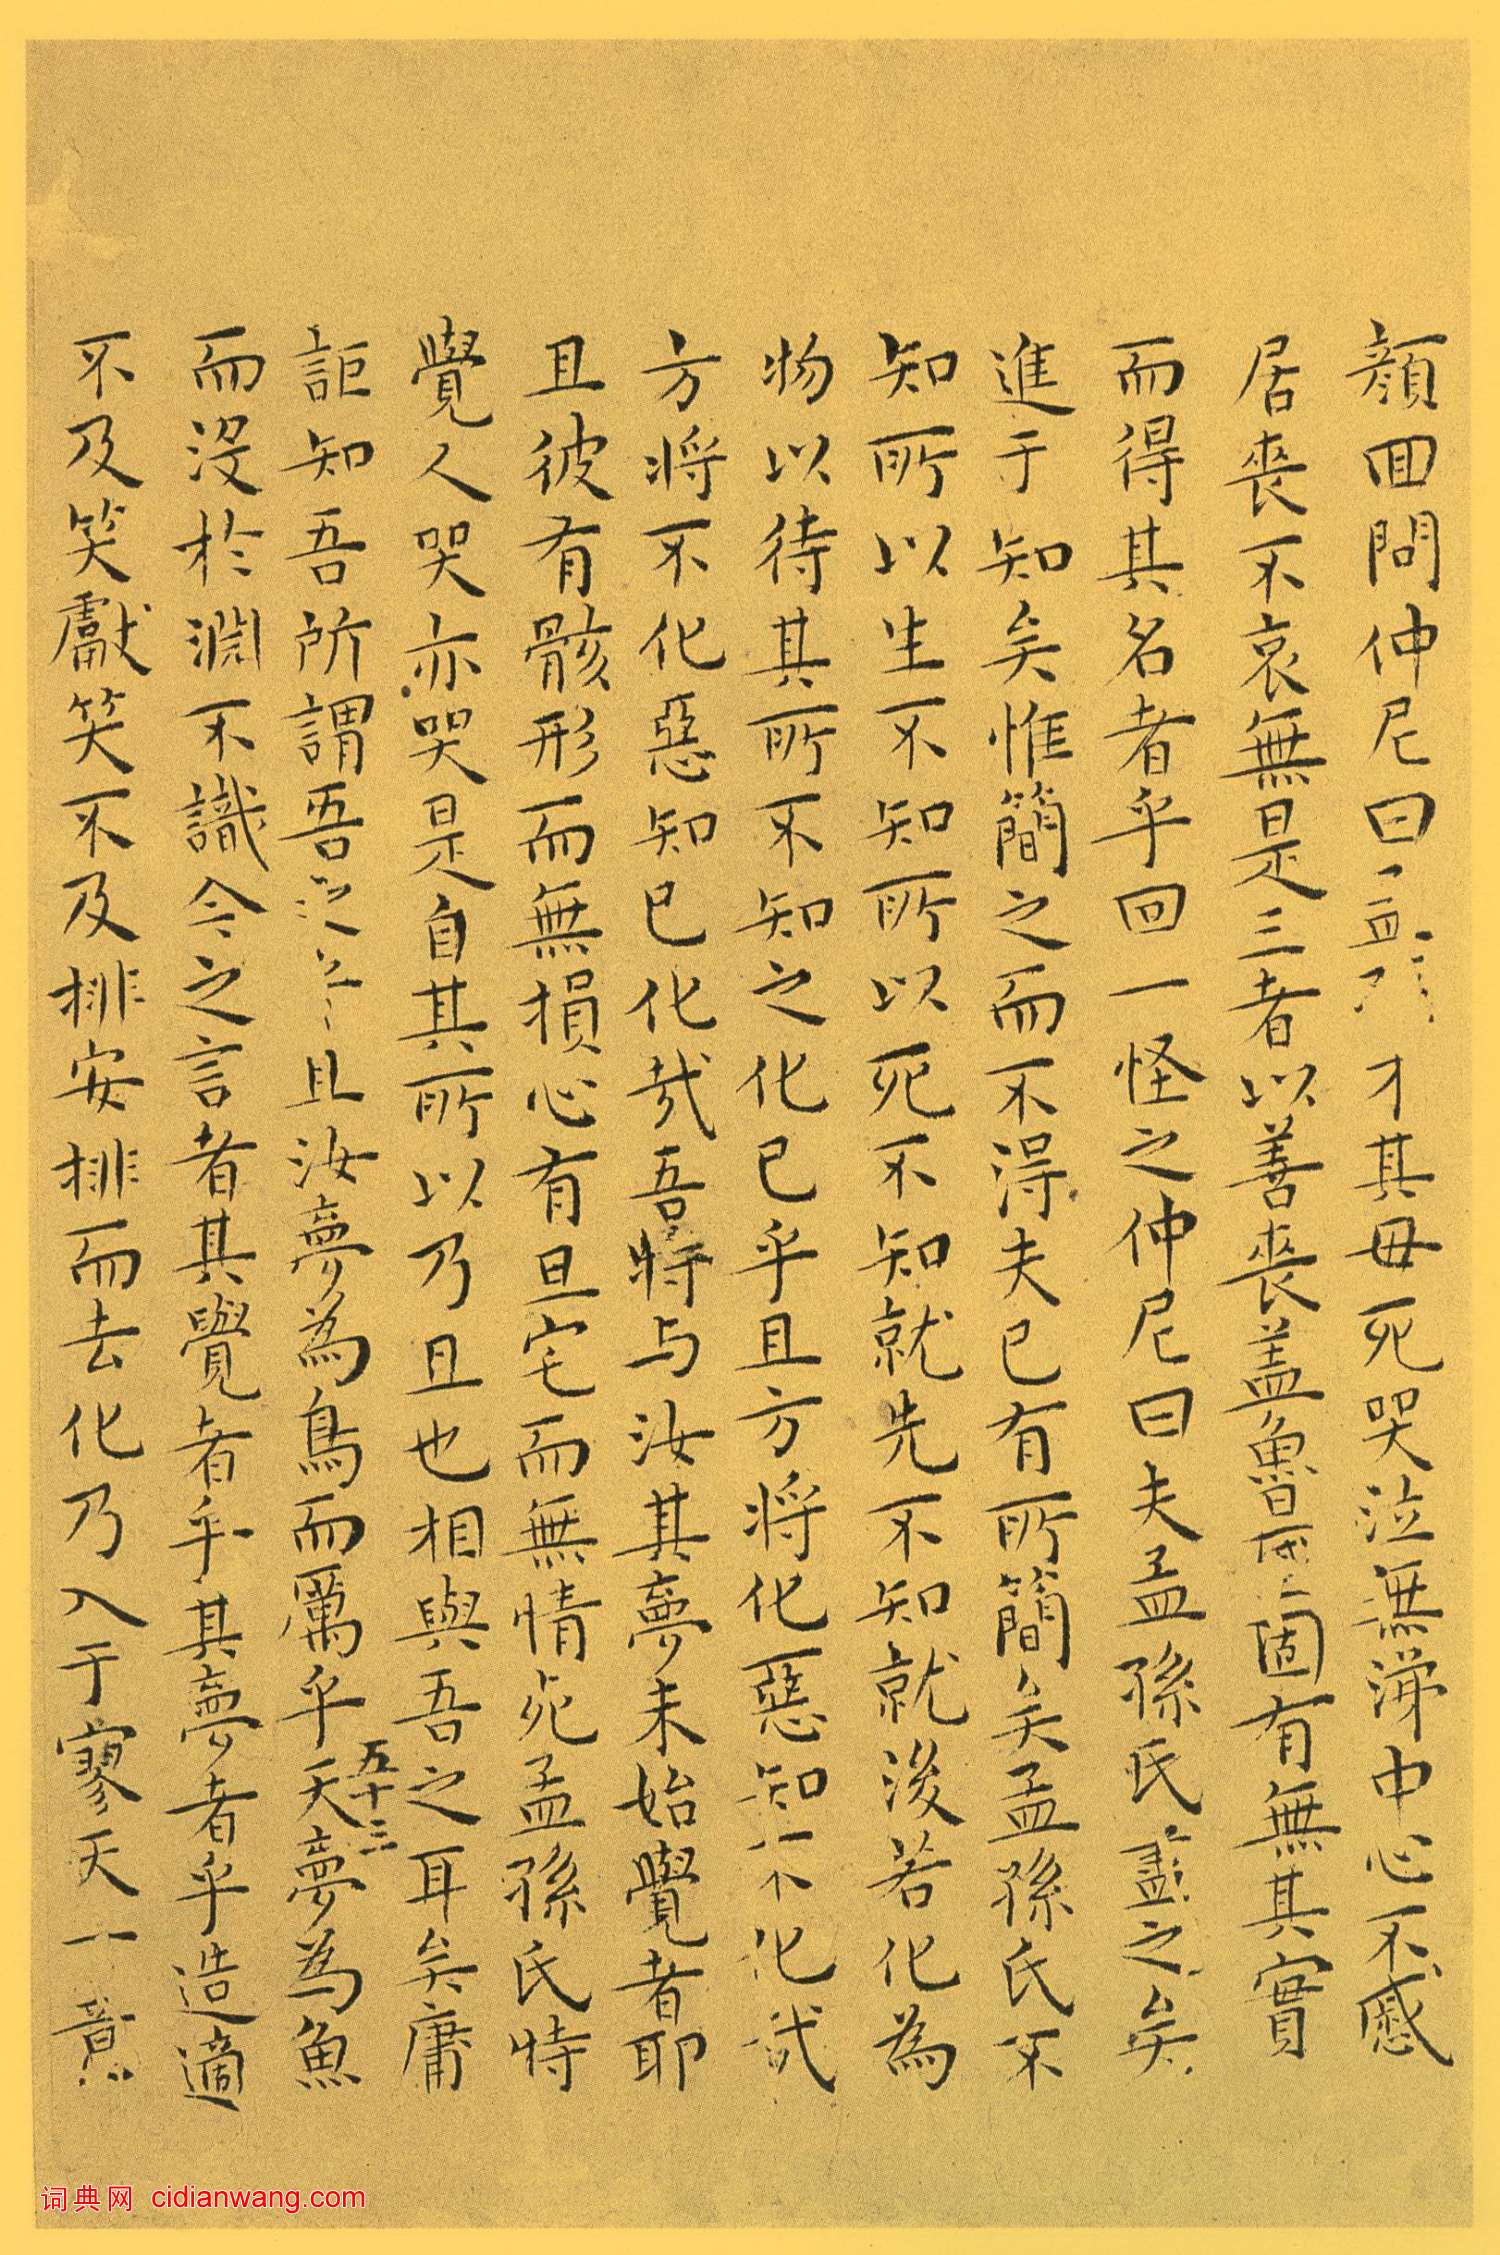 顔回問仲尼曰才其母死哭泣無涕中心不慼
居喪不哀無是三者以善喪蓋魯固有無其實
而得其名者乎回一怪之仲尼曰夫孟孫氏盡之矣
進于知矣惟簡之而不得夫已有所簡矣孟孫氏不
知所以生不知所以死不知就先不知就後若化為
物以待其所不知之化已乎且方將化惡知不化哉
方將不化惡知已化哉吾將与汝其夢未始覺者耶
且彼有骸形而無損心有旦宅而無情死孟孫氏特
覺人哭亦哭是自其所以乃且也相與吾之耳矣庸
五十三
詎知吾所謂吾且汝夢為鳥而厲乎天夢為魚
而沒於淵不識今之言者其覺者乎其夢者乎造適
不及笑獻笑不及排安排而去化乃入于寥天一意
词典网 cidianwang.com